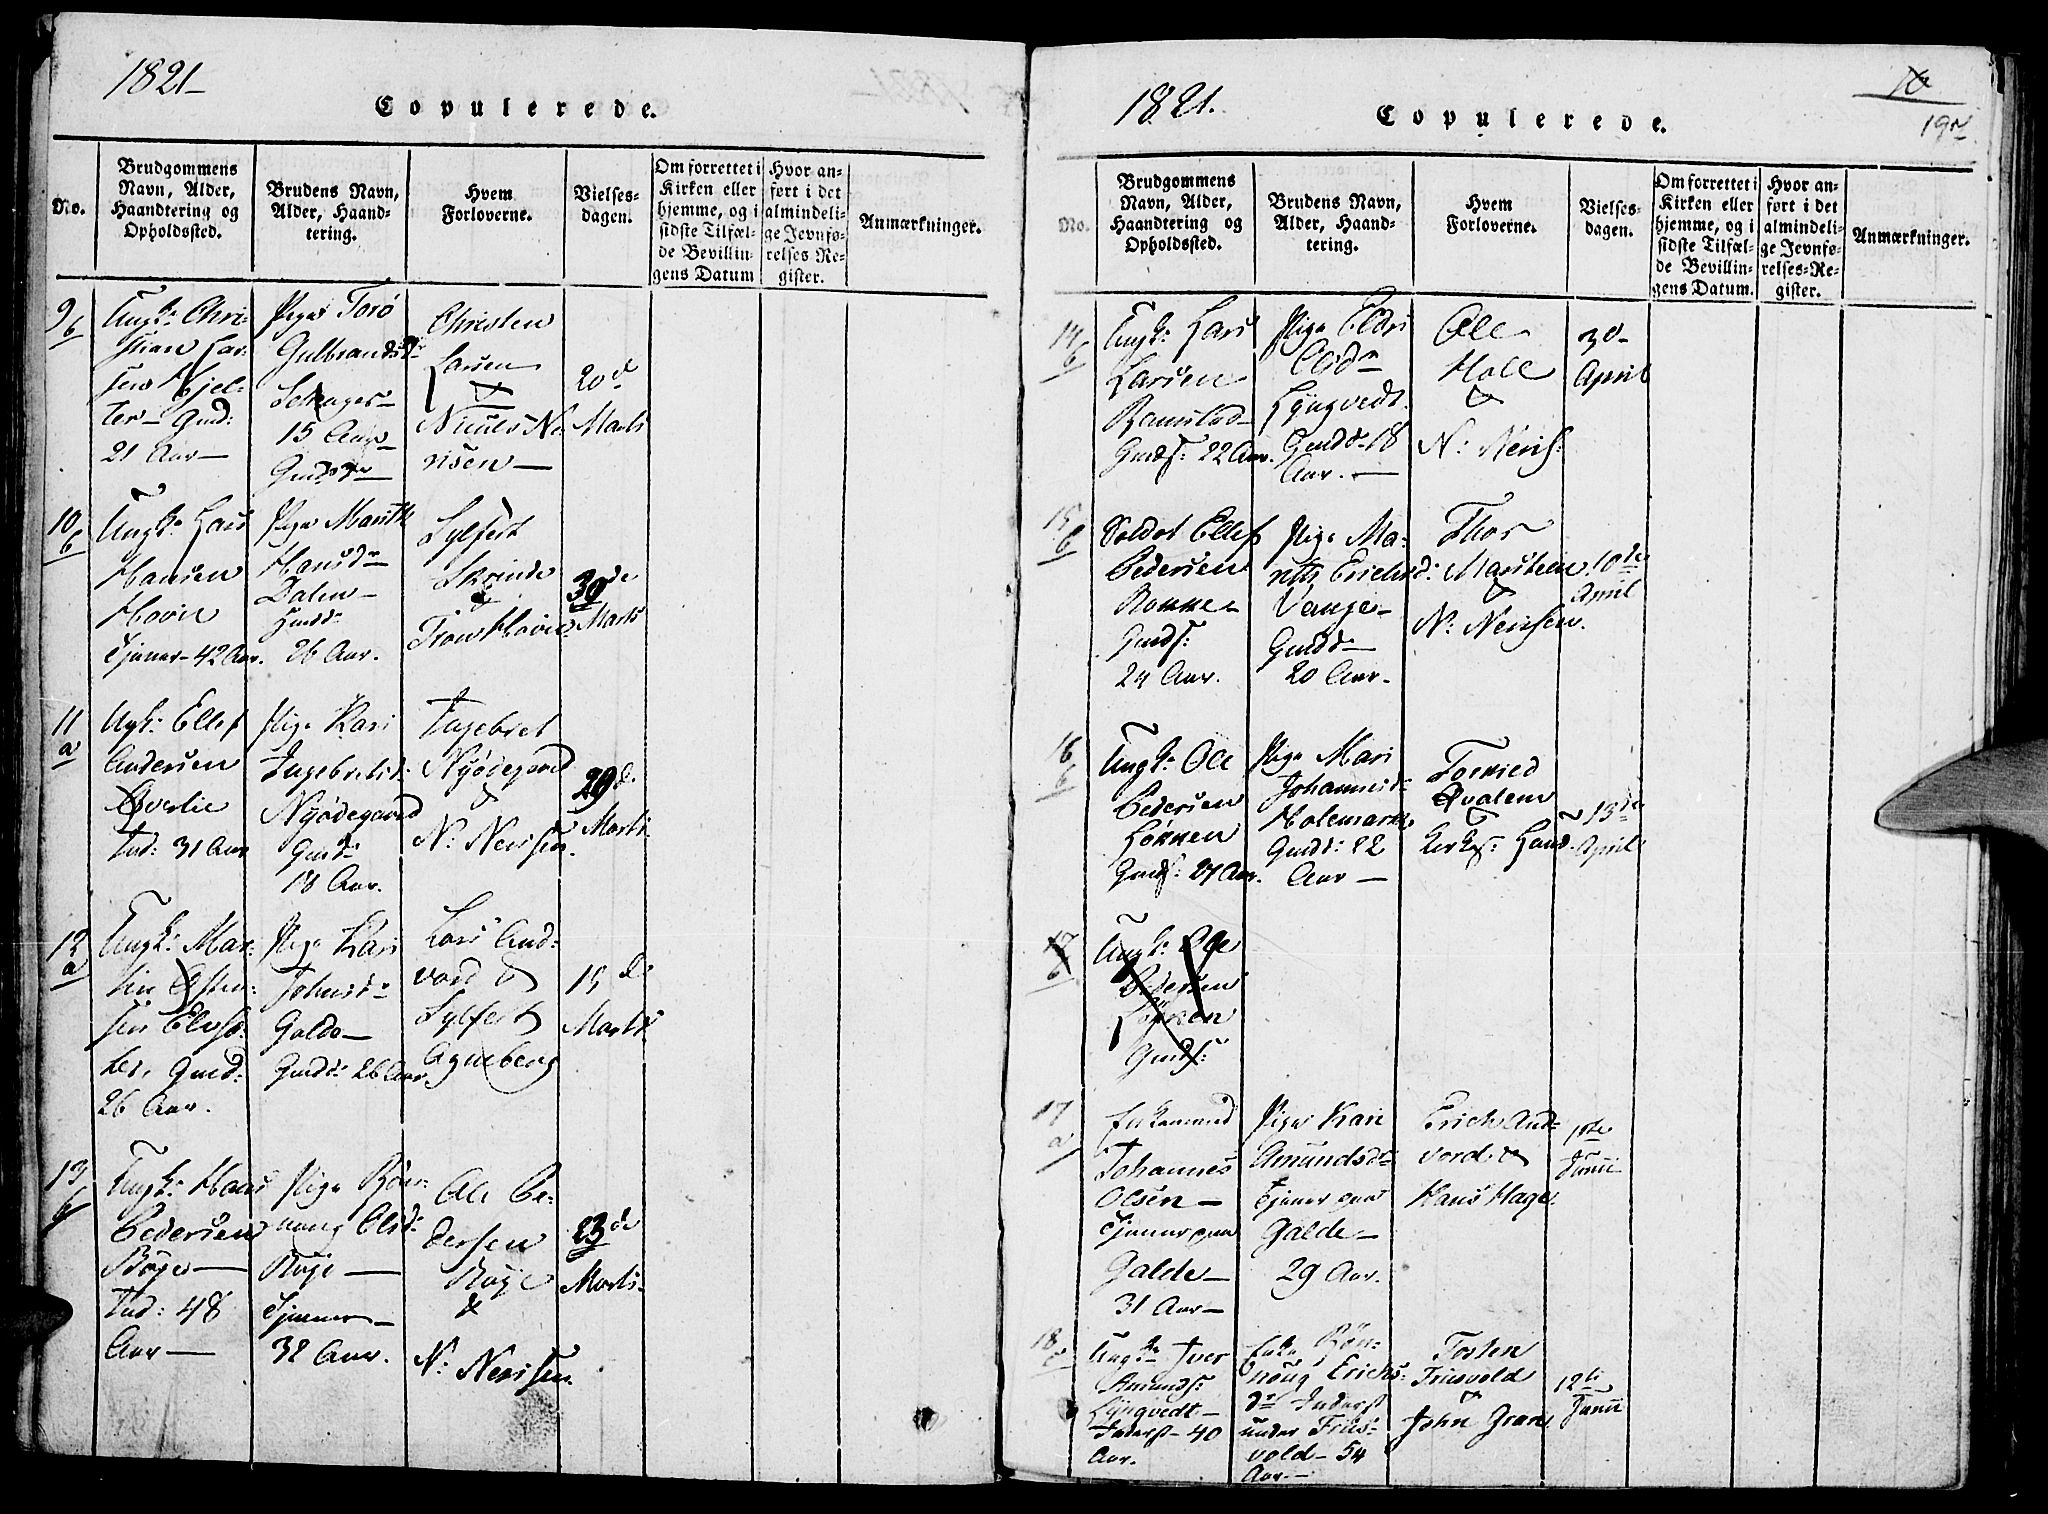 1821
Copulerede.
No.
Brudgommens
Navn, Alder,
Haandtering og
Opholdssted.
Brudens Navn,
Alder, Haand-
tering.
Hvem
Forloverne.
Vielses-
dagen.
Om forrettet i
Kirken eller
hjemme, og i
sidste Tilfæl-
de Bevillin-
gens Datum
Hvor an-
ført i det
almindeli-
ge Jevnfø-
relses Re-
gister.
Anmærkninger.
9/b
Ungk: Chri-
stian Lar-
sen Hjel-
ter Gmd:
21 Aar
Pige Torø
Gulbrandsdr
15 Aar
Christen
Larsen
&
Nriisen
20d
Marts
10/b
Ungk: Lars
Hansen
Hovin
Tjener 42 Aar.
Pige Marith
Hansdr
Dalen
Gmdd:
26 Aar.
Sylfest
Skrinde
&
Trow Hovin
30de
Marts
11/a
Ungk: Ellef
Andersen
Øverlie
Ind: 31 Aar
Pige Kari
Ingebretsd:
Nyødegaard
Gmdd:
18 Aar.
Ingebret
Nyødegaard
&
N: Neriisen.
29d:
Marts
12/a
Ungk: Mar-
tin Østen-
sen
Gmd:
26 Aar.
Pige Kari
Johnsdr
Galde
Gmdd: 26 Aar.
Lars And-
vord &
Sylfest
Agneberg
15d:
Marts
13/b
Ungk: Hans
Pedersen
Røye
Ind: 48
Aar
Pige Røn-
naug Olsd:
Røye
Tjener
32 Aar.
Ole Pe-
dersen
Røye
&
N: Neriisen.
23de
Marts
1821.
Copulerede.
16
197
No.
Brudgommens
Navn, Alder,
Haandtering og
Opholdssted.
Brudens Navn,
Alder, Haand-
tering.
Hvem
Forloverne.
Vielses-
dagen.
Om forrettet i
Kirken eller
hjemme, og i
sidste Tilfæl-
de Bevillin-
gens Datum.
Hvor an-
ført i det
almindeli-
ge Jevnfø-
relses-Re-
gister.
Anmærkninger.
14/b
Ungk: Lars
Larsen
Ramstad
Gmds: 22 Aar.
Pige Eldri
Olsdr
Lyngvedt
Gmdd 18
Aar.
Ole
Holé
&
N: Neriis:
3d
April
15/b
Soldat Ellef
Pedersen
Gmds:
24 Aar.
Pige Ma-
rith Erichsd:
Vange
Gmdd
20 Aar.
Thor
Marstein
&
N: Neriisen.
10de
April
16/b
Ungk: Ole
Pedersen
Løkken
Gmds: 27 Aar.
Pige Mari
Johannesd:
Holemark
Gmdd: 22
Aar
Qvalem
&
13de
April
17/b
Ungk: Ole
Pedersen
Løkken
Gmds:
17/a
Enkemand
Johannes
Olsen
Tjener paa
Galde
31 Aar
Pige Kari
Amundsdr
Tjener paa
Galde
29 Aar.
Erich And-
vord &
Hans Hage.
1ste
Junii
18/c
Ungk: Iver
Amunds:
Lyngvedt
Inderst 40
Aar.
Enke Røn-
noug Erichs-
dr Inderst
under Friis-
vold 54
Aar.
Tosten
Friisvold
&
John Gran
12te
Junii